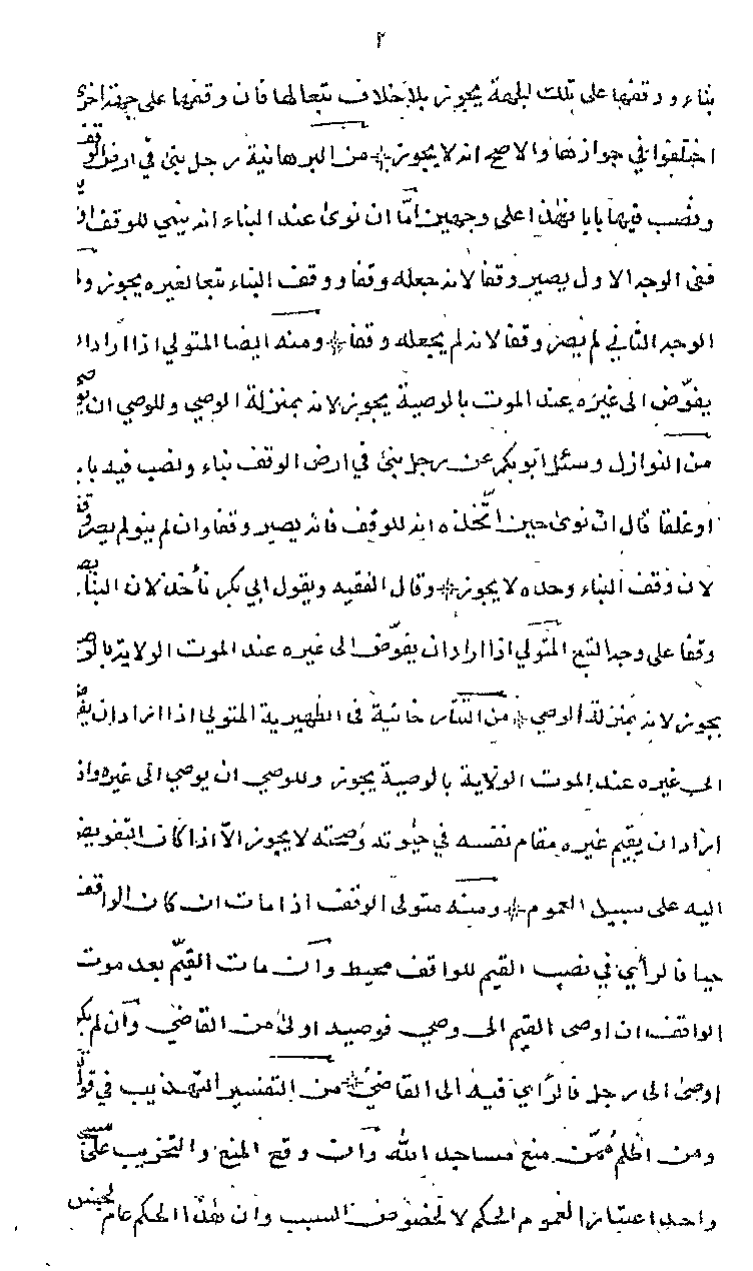 ٢
بناء ووقفها على تلك الجهة يجوز بلا خلاف تبعا لها فان وقفها على جهة اخرى
اختلفوا في جوازها والاصح انه لا يجوز من البرهانية رجل بنى في ارض الوقف
ونصب فيها بابا فهذا على وجهين اما ان نوى عند البناء انه يبني للوقف او
ففى الوجه الاول يصير وقفا لانه جعله وقفا ووقف البناء تبعا لغيره يجوز و
الوجه الثاني لم يصر وقفا لانه لم يجعله وقفا ومنه ايضا المتولي اذا اراد ان
يفوّض الى غيره عند الموت بالوصية يجوز لانه بمنزلة الوصي وللوصي ان يوصي
من النوازل وسئل ابو بكر عن رجل بنى في ارض الوقف بناء ونصب فيه بابا
او غلقا قال ان نوى حين اتّخذه انه للوقف فانه يصير وقفا وان لم ينو لم يصر وقفا
لان وقف البناء وحده لا يجوز وقال الفقيه وبقول ابي بكر نأخذ لان البناء يصير
وقفا على وجه التبع المتولي اذا اراد ان يفوّض الى غيره عند الموت الولاية بالوصية
يجوز لانه بمنزلة الوصي من التتارخانية في الظهيرية المتولي اذا اراد ان يفوّض
الى غيره عند الموت الولاية بالوصية يجوز وللوصي ان يوصي الى غيره واذا
اراد ان يقيم غيره مقام نفسه في حيوته وصحته لا يجوز الّا اذا كان التفويض
اليه على سبيل العموم ومنه متولى الوقف اذا مات ان كان الواقف
حيا فالرأي في نصب القيم للواقف وان مات القيّم بعد موت
الواقف ان اوصى القيم الى وصي فوصيه اولى من القاضي وان لم يكن
اوصى الى رجل فالرأي فيه الى القاضي من التفسير التهذيب في قوله
ومن اظلم ممّن منع مساجد الله وان وقع المنع والتخريب على
واحد اعتبار العموم الحكم لا لخصوص السبب وان هذا الحكم عام لجنس